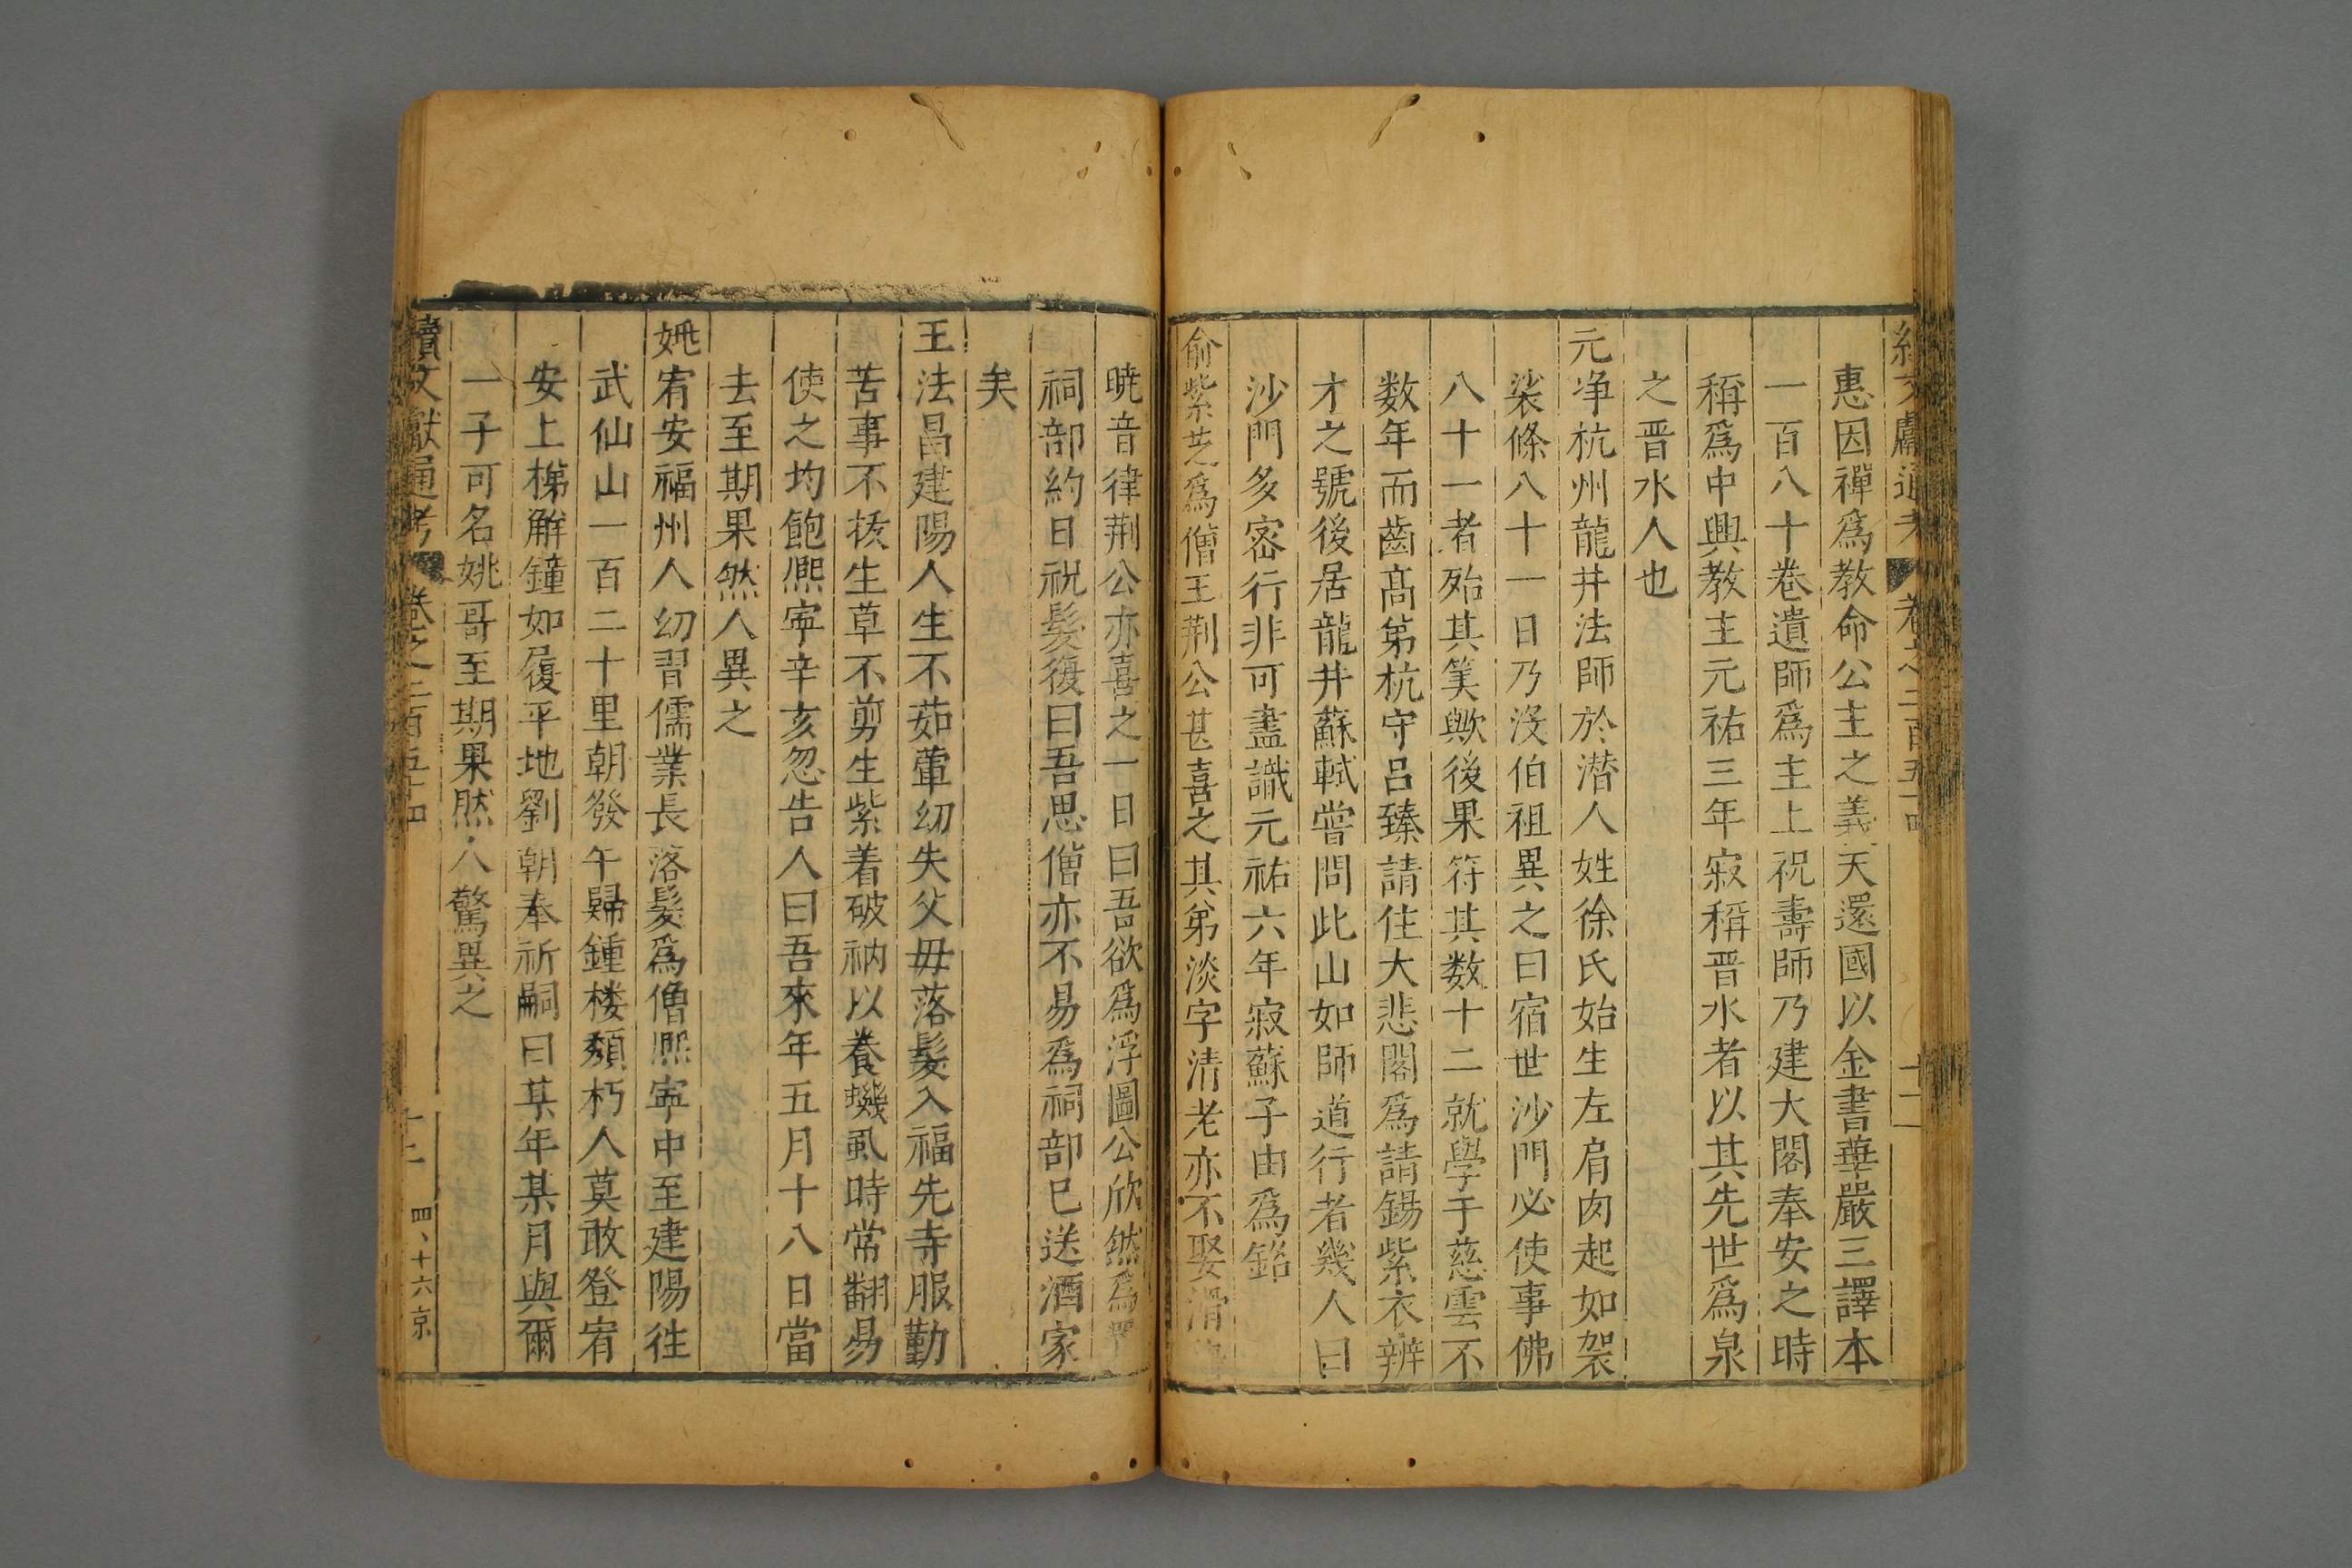 惠因禪爲教命公主之義天還國以金書華嚴三譯本
一百八十卷遺師爲主上祝壽師乃建大閣奉安之時
稱爲中興教主元祐三年寂稱晋水者以其先世爲泉
之晋水人也
元净杭州龍井法師於潜人姓徐氏始生左肩肉起如袈
裟條八十一日乃沒伯祖異之曰宿世沙門必使事佛
八十一者殆其筭歟後果符其数十二就學于慈雲不
数年而齒髙第杭守吕臻請住大悲閣爲請錫紫衣辨
才之號後居龍井蘇軾嘗問此山如師道行者幾人曰
沙門多宻行非可盡識元祐六年寂蘇子由爲銘
俞紫芝爲僧王荆公甚喜之其弟淡字清老亦不娶滑
暁音律荆公亦喜之一日曰吾欲爲浮圖公欣然爲
祠部約日祝髮後曰吾思僧亦不易爲祠部已送酒家
矣
王法昌建陽人生不茹葷幼失父毋落髮入福先寺服勤
苦事不拔生草不剪生紫着破衲以養蟣虱時常翻易
使之均飽熈寕辛亥忽告人曰吾來年五月十八日當
去至期果然人異之
姚宥安福州人幼習儒業長落髮爲僧熈寕中至建陽徃
武仙山一百二十里朝發午歸鍾楼頽朽人莫敢登宥
安上梯解鐘如履平地劉朝奉祈嗣曰某年某月與爾
一子可名姚哥至期果然人驚異之
續文獻通考 卷之二百五十四 十二 四十六京